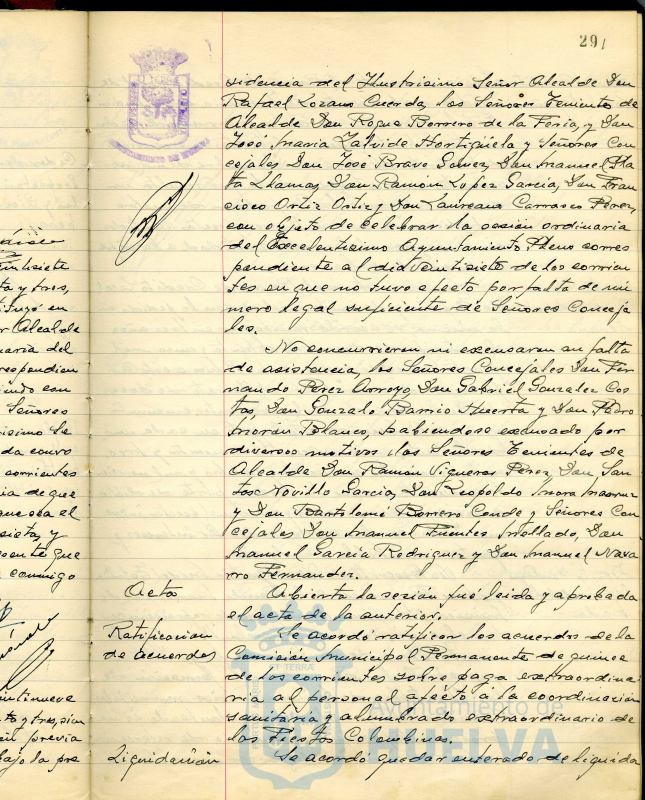 291
sidencia del Ilustrisimo Señor Alcalde Don
Rafael Lozano Cuerda, los Señores Tenientes de
Alcalde Don Roque Borrero de la Feria, y Don
José Maria Zalvide Hortigüela y Señores Con
cejales Don José Bravo Gomez, Don Manuel Pla
ta Llamas, Don Ramón Lopez Garcia, Don Fran
cisco Ortiz Ortiz y Don Laureano Carrasco Perez,
con objeto de celebrar la sesión ordinaria
del Excelentisimo Ayuntamiento Pleno corres
pondiente al dia veintisiete de los corrien
tes en que no tuvo efecto por falta de nú
mero legal suficiente de Señores Conceja
les.
No concurrieron ni excusaron su falta
de asistencia, los Señores Concejales Don Fer
nando Perez Arroyo Don Gabriel Gonzalez Cos
tos, Don Gonzalo Barrio Huerta y Don Pedro
Morón Blanco, habiendose excusado por
diversos motivos los Señores Tenientes de
Alcalde Don Ramón Vigueras Perez, Don San
tos Novillo Garcia, Don Leopoldo Mora
y Don Bartolomé Borrero Conde y Señores Con
cejales Don Manuel Fuentes Mellado, Don
Manuel Garcia Rodriguez y Don Manuel Nava
rro Fernandez.
Acta
Abierta la sesión fué leida y aprobada
el acta de la anterior.
Ratificacion
de acuerdos
Se acordó ratificar los acuerdos de la
Comisión Municipal Permanente de quince
de los corrientes sobre paga extraordina
ria al personal afecto a la coordinación
sanitaria y alumbrado extraordinario de
las Fiestas Colombinas.
Liquidación
Se acordó quedar enterado de liquida
Ayuntamiento de
HUELVA